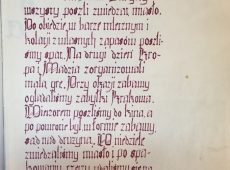 wszyscy poszli zwiedzać miasto.
Po obiedzie w barze mlecznym i
kolacji z własnych zapasów poszli-
śmy spać. Na drugi dzień Kro-
pa i Madzia zorganizowali
małą grę. Przy okazji zabawy
oglądaliśmy zabytki Krakowa.
Wieczorem poszliśmy do kina, a
po powrocie był w formie zabawy,
sąd nad drużyną. W niedzielę
zwiedzaliśmy miasto i po spa-
kowaniu rzeczy udaliśmy się na